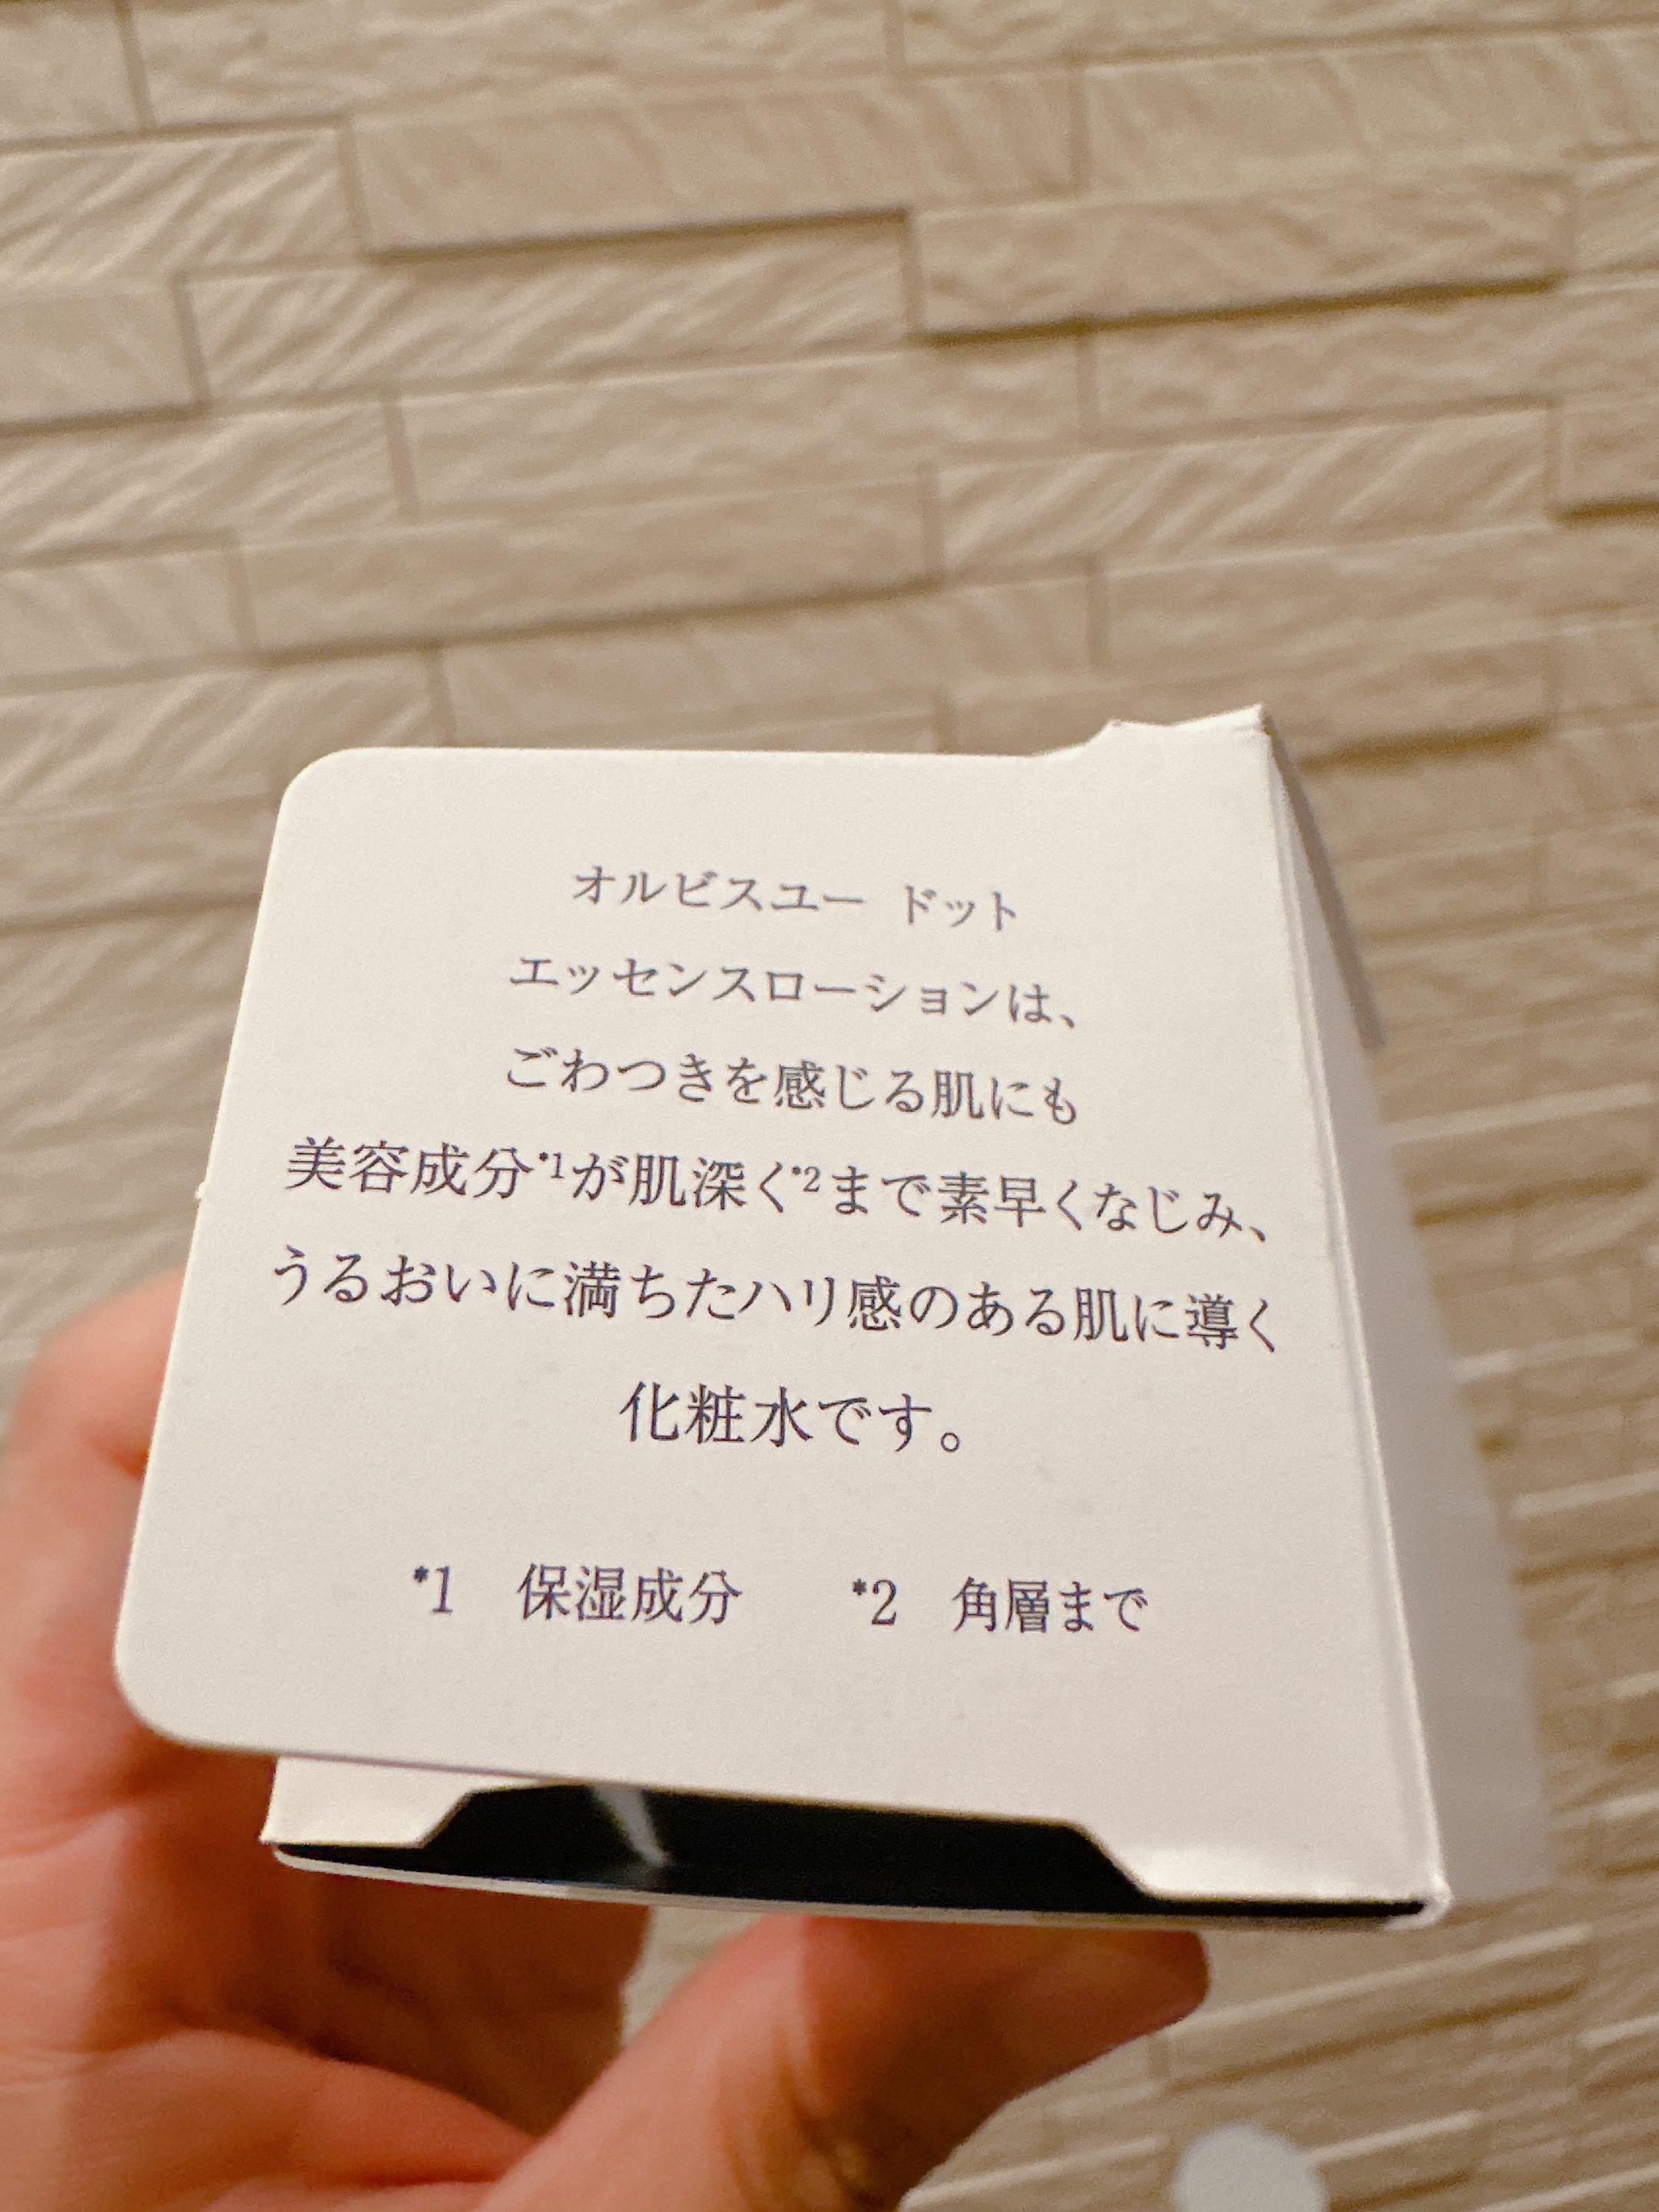 オルビスユー ドット
エッセンスローションは、
ごわつきを感じる肌にも
美容成分*1が肌深く*2まで素早くなじみ、
うるおいに満ちたハリ感のある肌に導く
化粧水です。
*1 保湿成分 *2 角層まで